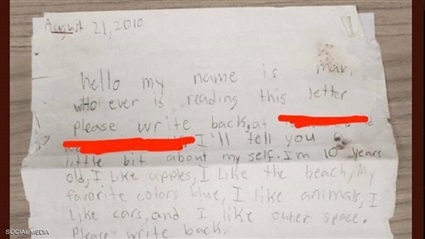 August 21, 2010
hello my name is max,
who ever is reading this letter
please write back, at
I'll tell you a
little bit about my self. I'm 10 years
old, I like apples, I like the beach, My
favorite colors blue, I like animals, I
like cars, and I like outer space.
Please write back.
SOCIAL MEDIA